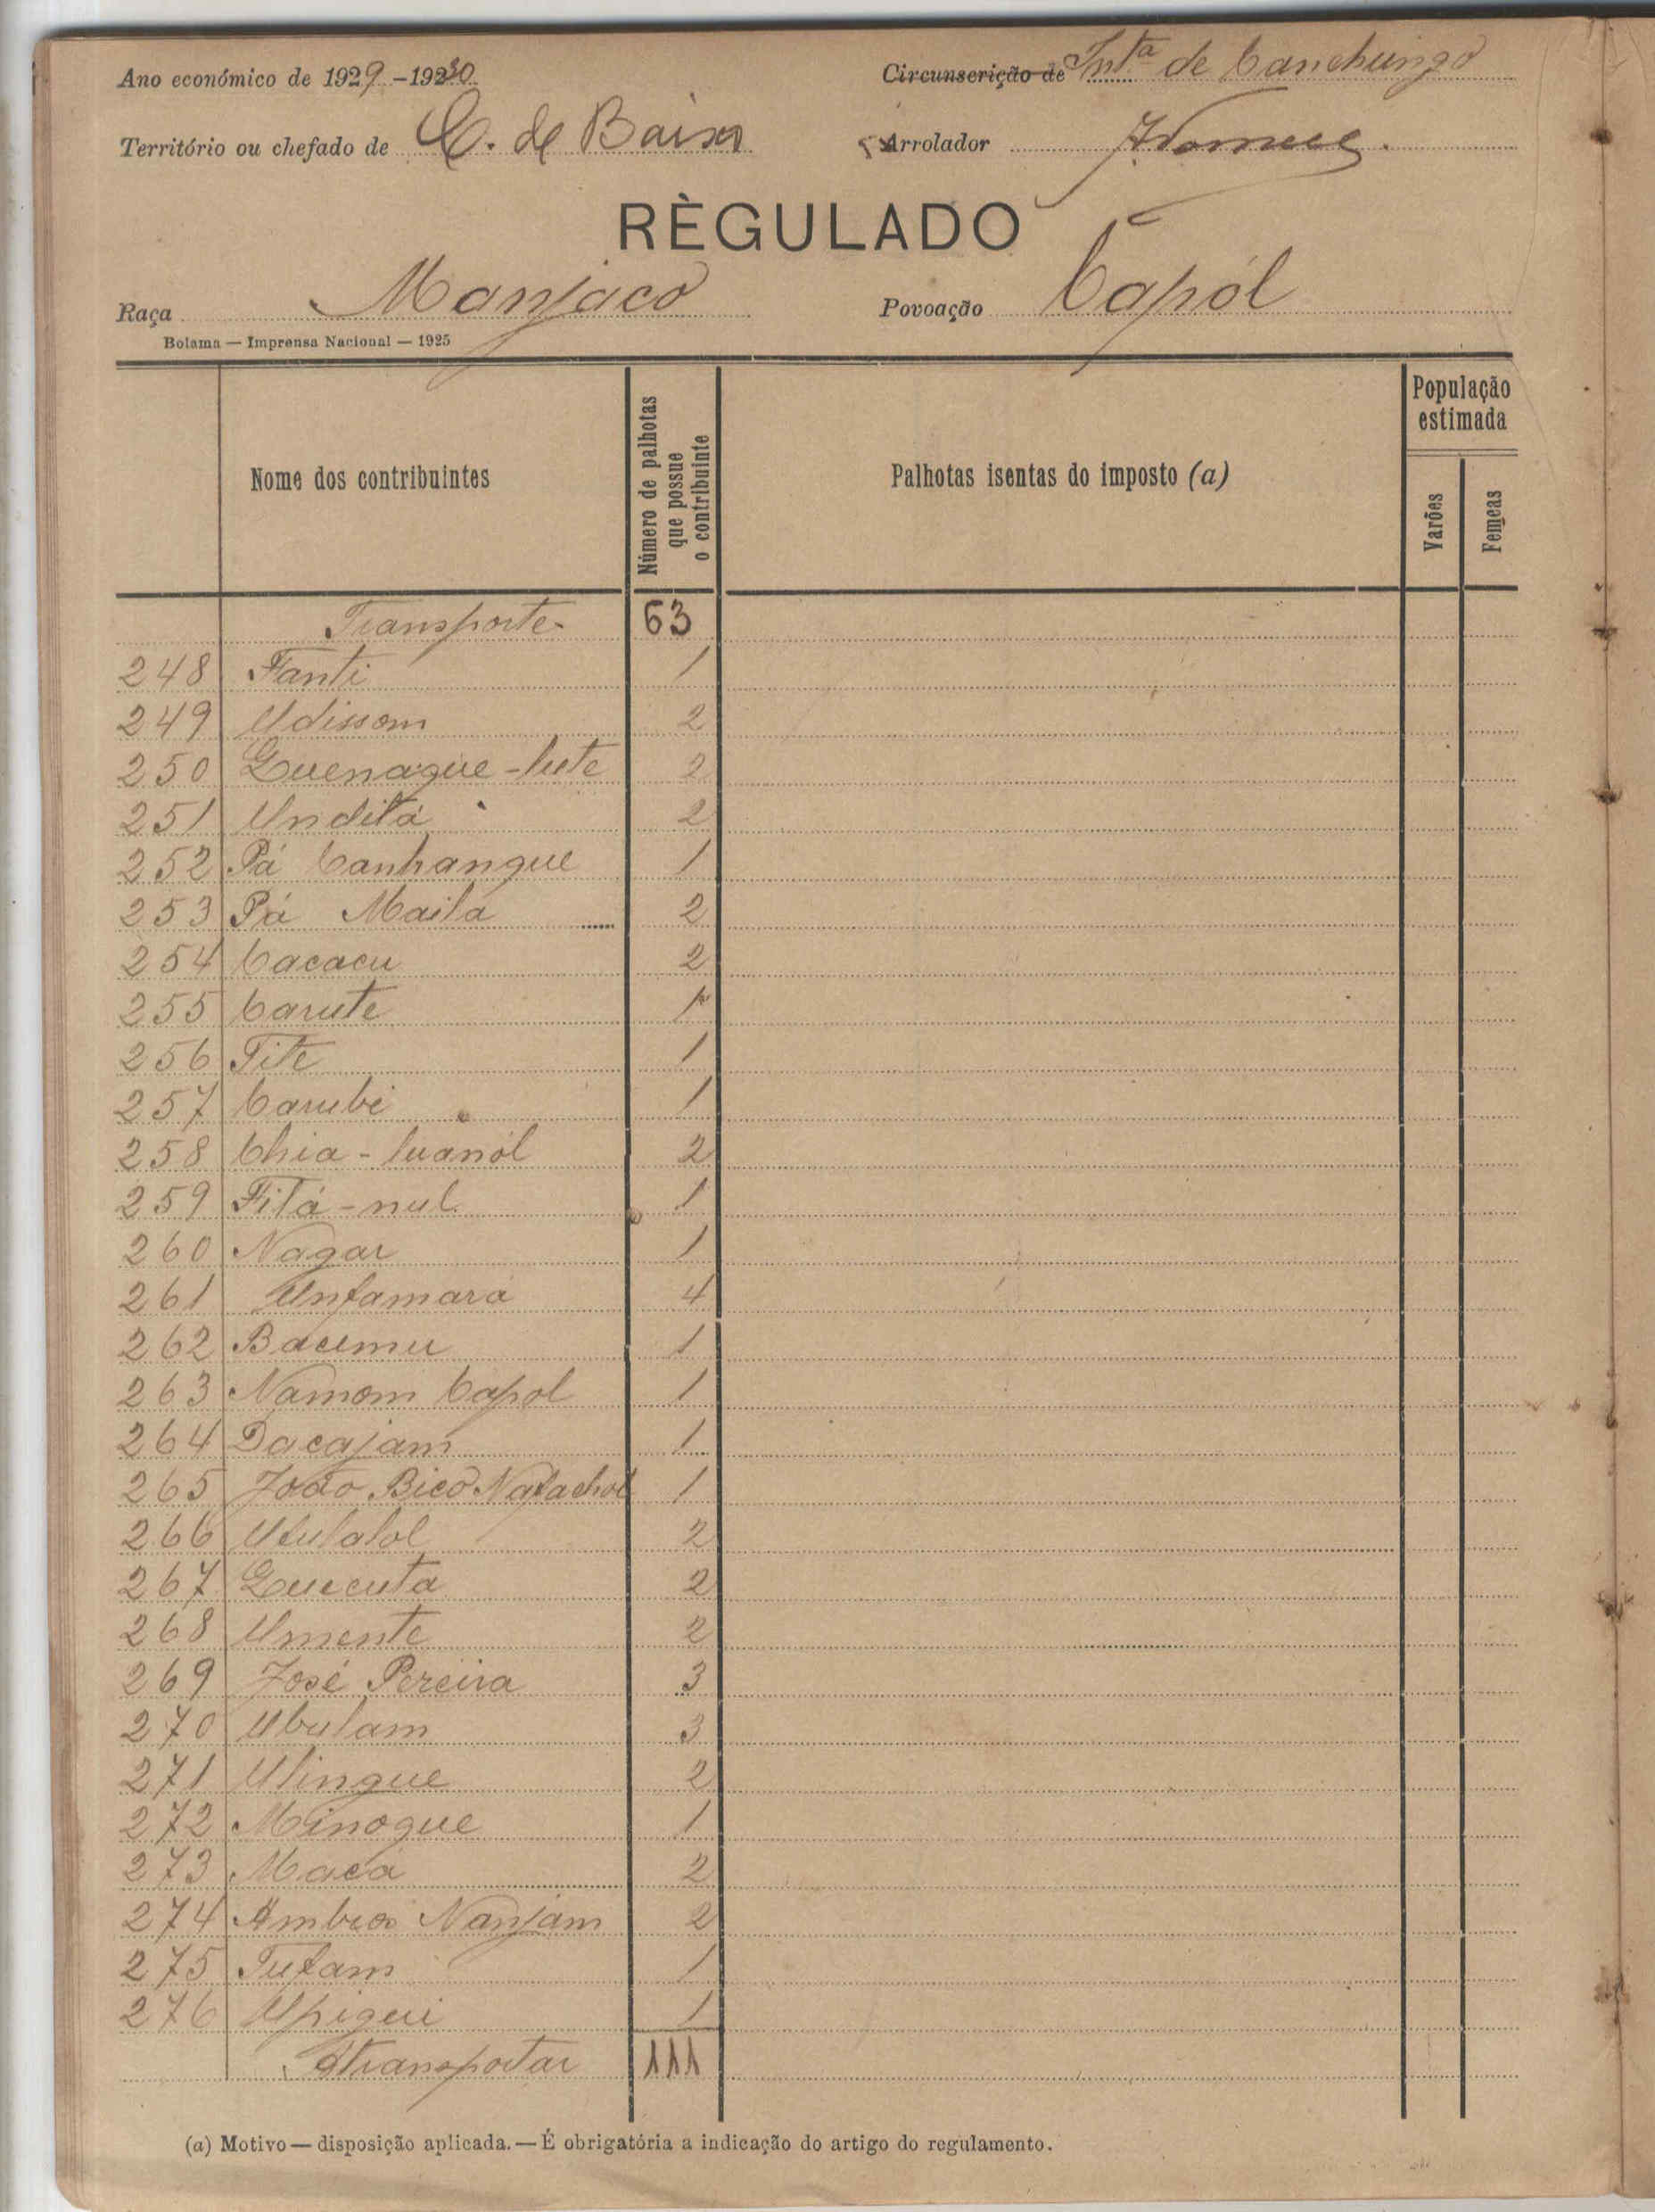 Ano económico de 1929-1930
Circunscrição de Int.ª de Canchungo
Território ou chefado de C. de Baixo
Arrolador
RÈGULADO
Raça Manjaco
Povoação Capól
Bolama — Imprensa Nacional — 1925
Nome dos contribuintes
Número de palhotas que possue o contribuinte
Palhotas isentas do imposto (a)
População estimada
Varões
Femeas
Transporte 63
248 Fanti 1
249 Udissom 2
250 Quenague-lute 2
251 Unditá 2
252 Pá Canhangue 1
253 Pá Maila 2
254 Cacacu 2
255 Carute 1
256 Tite 1
257 Carubé 1
258 Chia-luanól 2
259 Fitá-nul 1
260 Nagar 1
261 Untamará 4
262 Bacumu 1
263 Namom Capol 1
264 Dacajam 1
265 João Bico Natachol 1
266 2
267 Quecuta 2
268 Umente 2
269 José Pereira 3
270 Ubulam 3
271 Ulingue 2
272 Minogue 1
273 Macá 2
274 Nanjam 2
275 Tutam 1
276 Upigui 1
A transportar 111
(a) Motivo — disposição aplicada. — É obrigatória a indicação do artigo do regulamento.